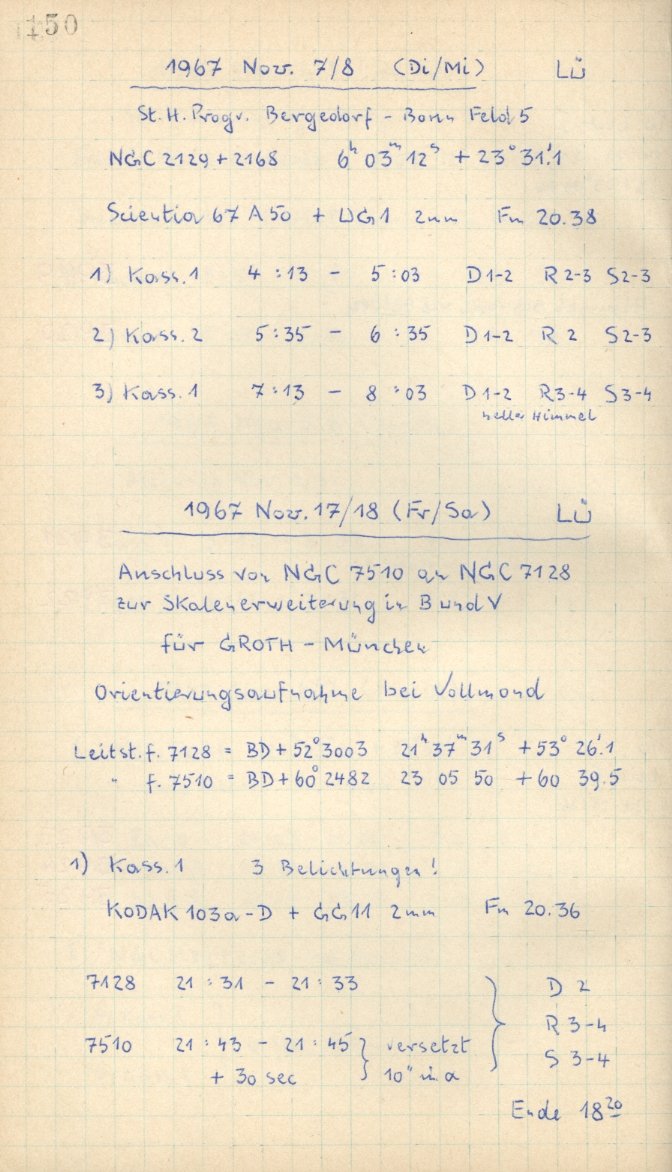 150
1967 Nov. 7/8 (Di/Mi) LÜ
St. H. Progr. Bergedorf - Bonn Feld 5
NGC 2129 + 2168 6ʰ 03ᵐ 12ˢ + 23° 31'.1
Scientia 67 A 50 + UG1 2mm Fn 20.38
1) Kass. 1 4:13 - 5:03 D 1-2 R 2-3 S 2-3
2) Kass. 2 5:35 - 6:35 D 1-2 R 2 S 2-3
3) Kass. 1 7:13 - 8:03 D 1-2 R 3-4 S 3-4
heller Himmel
1967 Nov. 17/18 (Fr/Sa) LÜ
Anschluss von NGC 7510 an NGC 7128
zur Skalenerweiterung in B und V
für GROTH - München
Orientierungsaufnahme bei Vollmond
Leitst. f. 7128 = BD + 52° 3003 21ʰ 37ᵐ 31ˢ + 53° 26'.1
" f. 7510 = BD + 60° 2482 23 05 50 + 60 39.5
1) Kass. 1 3 Belichtungen!
KODAK 103a-D + GG11 2mm Fn 20.36
7128 21:31 - 21:33 D 2
R 3-4
7510 21:43 - 21:45 } versetzt S 3-4
+ 30 sec 10" in α
Ende 18²⁰